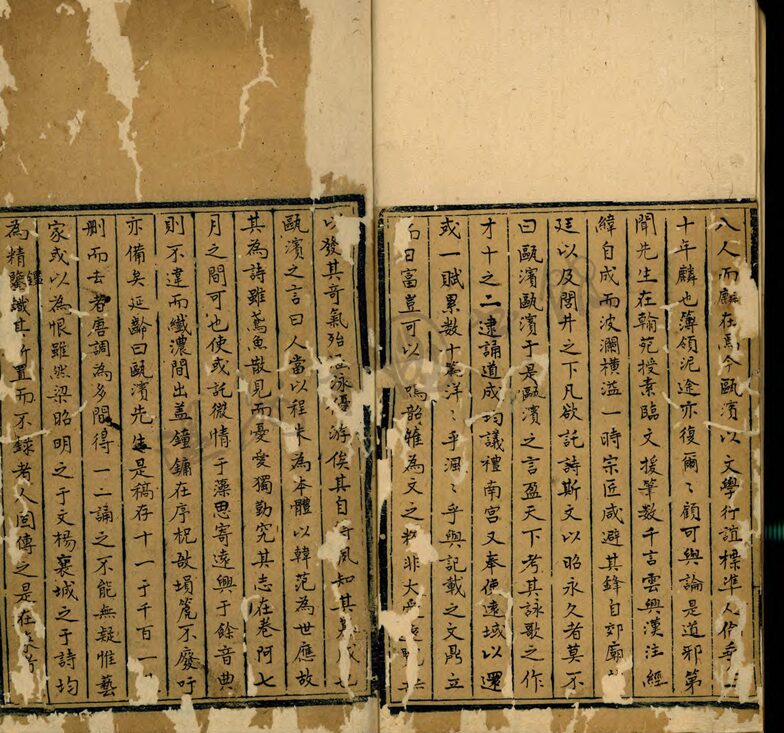 八人而麟在焉今甌濵以文學行誼標凖人倫
十年麟也簿領泥途亦復爾〻顧可與論是道邪第
聞先生在翰苑授素臨文援筆數千言雲興漢注經
緯自成而波瀾横溢一時宗匠咸避其鋒自郊廟
廷以及閭井之下凡欲託詩斯文以昭永久者莫不
曰甌濵甌濵于是甌濵之言盈天下考其詠歌之作
才十之二逮誦道成均議禮南宮又奉使遠域以還
或一賦累數十篇洋〻乎渢〻乎與記載之文鼎立
而日富豈可以 韶雒為文之 非大
以發其竒氣殆 泳優游俟其自 夙知其
甌濵之言曰人當以程朱為本體以韓范為世應故
其為詩雖鳶魚散見而憂愛獨勤究其志在卷阿七
月之間可也使或託微情于藻思寄遠興于餘音典
則不違而纎濃間出盖鐘鏞在序柷敔塤箎不廢吁
亦備矣延齡曰甌濵先生是稿存十一于千百一
删而去者唐調為多間得一二誦之不能無疑惟藝
家或以為恨雖然梁昭明之于文楊襄城之于詩均
為精鑑 其所置而不錄者人固傳之是在